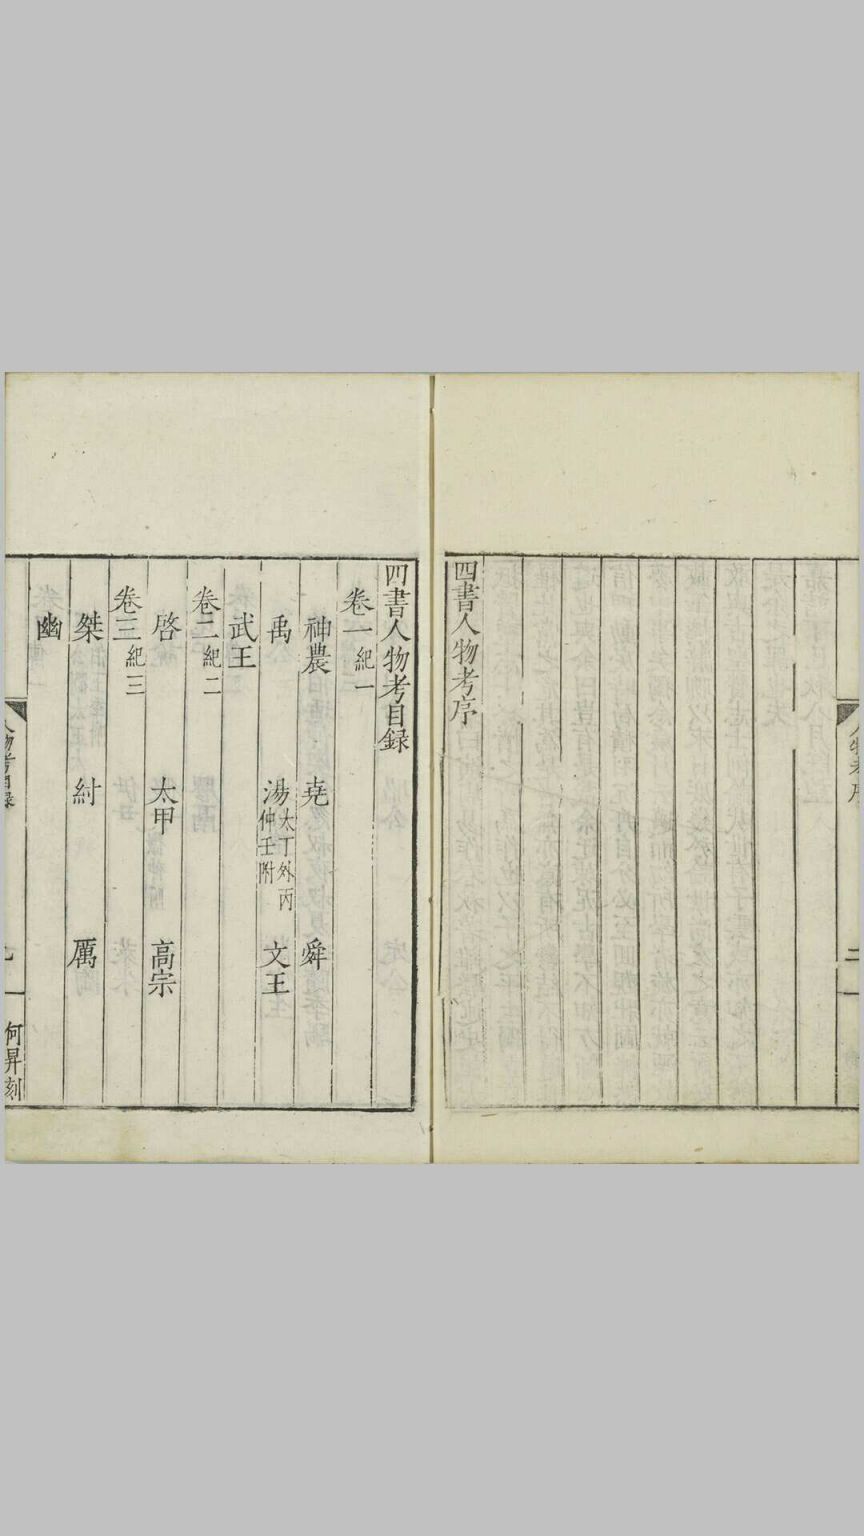 四書人物考序
四書人物考目録
卷一 紀一
神農 堯 舜
禹 湯 太丁外丙仲壬附 文王
武王
卷二 紀二
啓 太甲 高宗
卷三 紀三
桀 紂 厲
幽
何昇刻